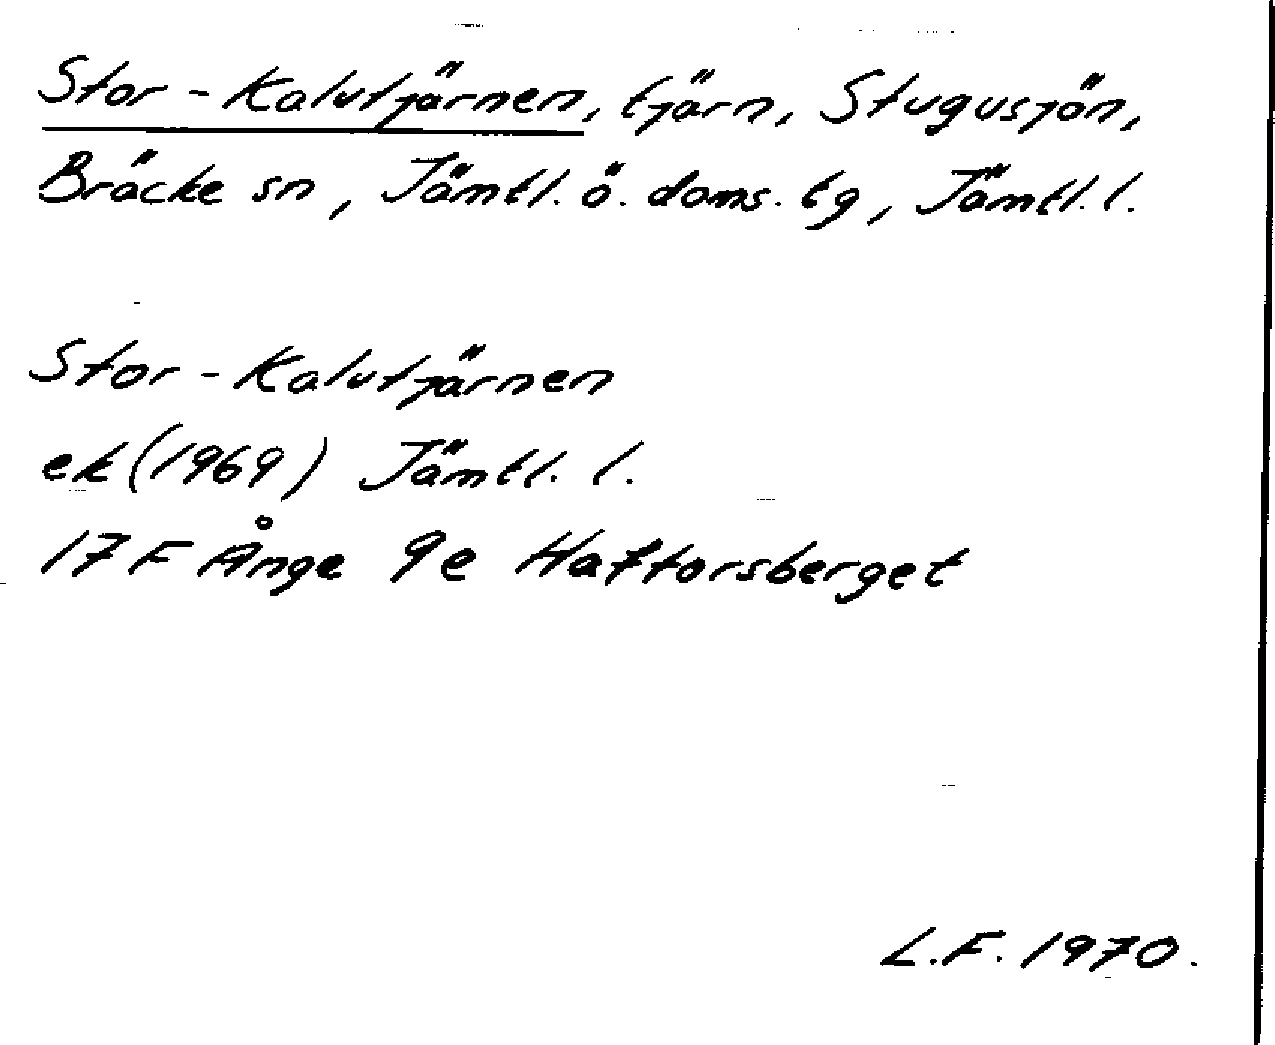 Stor-Kalvtjärnen, tjärn, Stugusjön,
Bräcke sn, Jämtl. ö. doms. tg, Jämtl. l.
Stor-Kalvtjärnen
ek (1969) Jämtl. l.
17 F Ånge 9e Haftorsberget
L.F. 1970.